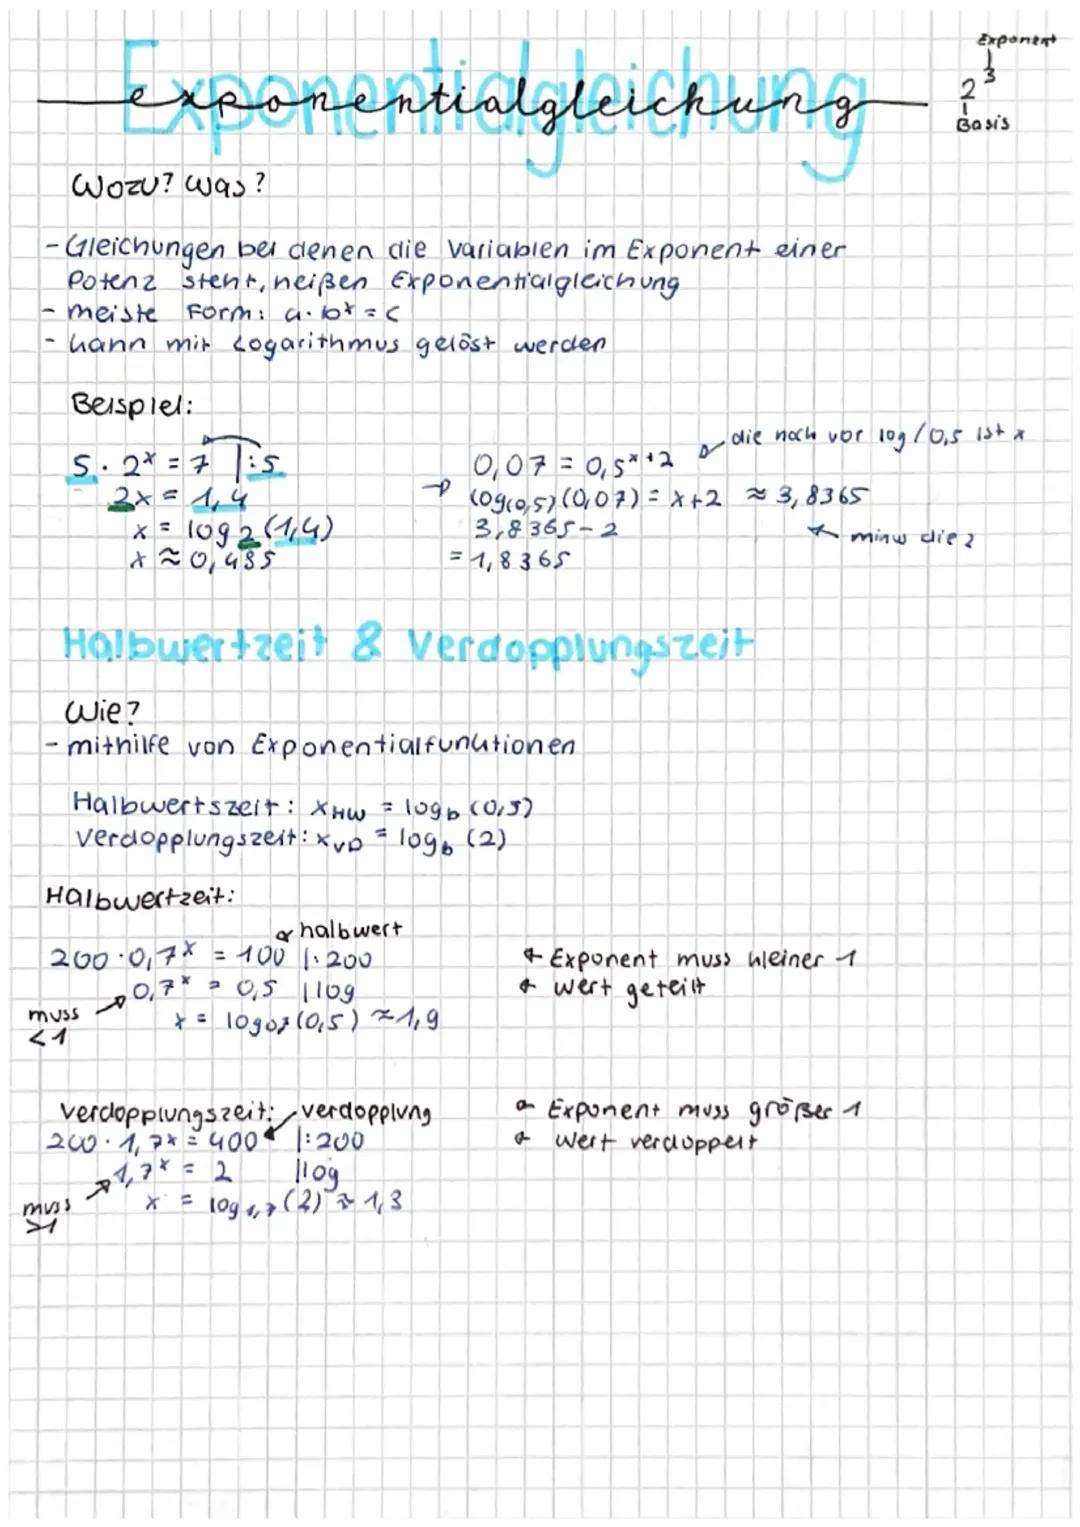 Exponentialgleichung
exponentialgleichung
Exponent
2³
Basis
Wozu? Was?
- Gleichungen bei denen die Variablen im Exponent einer
Potenz steht, heißen Exponentialgleichung
- meiste Form: a · bˣ = c
- kann mit Logarithmus gelöst werden
Beispiel:
5 · 2ˣ = 7 |:5
2x = 1,4
x = log₂(1,4)
x ≈ 0,485
die noch vor log/0,5 ist x
0,07 = 0,5ˣ⁺²
log(0,5)(0,07) = x+2 ≈ 3,8365
3,8365 - 2
minus die 2
= 1,8365
Halbwertzeit & Verdopplungszeit
Wie?
- mithilfe von Exponentialfunktionen
Halbwertszeit: x_HW = log_b (0,5)
Verdopplungszeit: x_VD = log_b (2)
Halbwertzeit:
halbwert
200 · 0,7ˣ = 100 |:200
0,7ˣ = 0,5 |log
x = log₀,₇(0,5) ≈ 1,9
muss
<1
Exponent muss kleiner 1
Wert geteilt
Verdopplungszeit: verdopplung
200 · 1,7ˣ = 400 |:200
1,7ˣ = 2 |log
x = log₁,₇(2) ≈ 1,3
muss
>1
Exponent muss größer 1
Wert verdoppelt